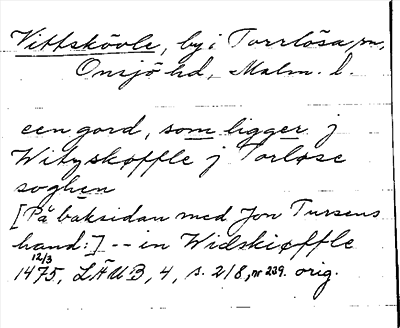 Vittskövle, by i Torrlösa sn,
Onsjö hd, Malm. l.
een gord, som ligger j
Wityskøffle j Torløse
soghen
[På baksidan med Jon Tursens
hand:] -- in Widskiøffle
12/3
1475, LÄUB, 4, s. 218, nr 239. orig.